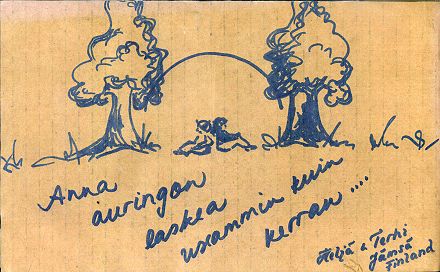 Anna
auringon
laskea
useammin kuin
kerran ....
Heljä & Terhi
Jämsä
Finland